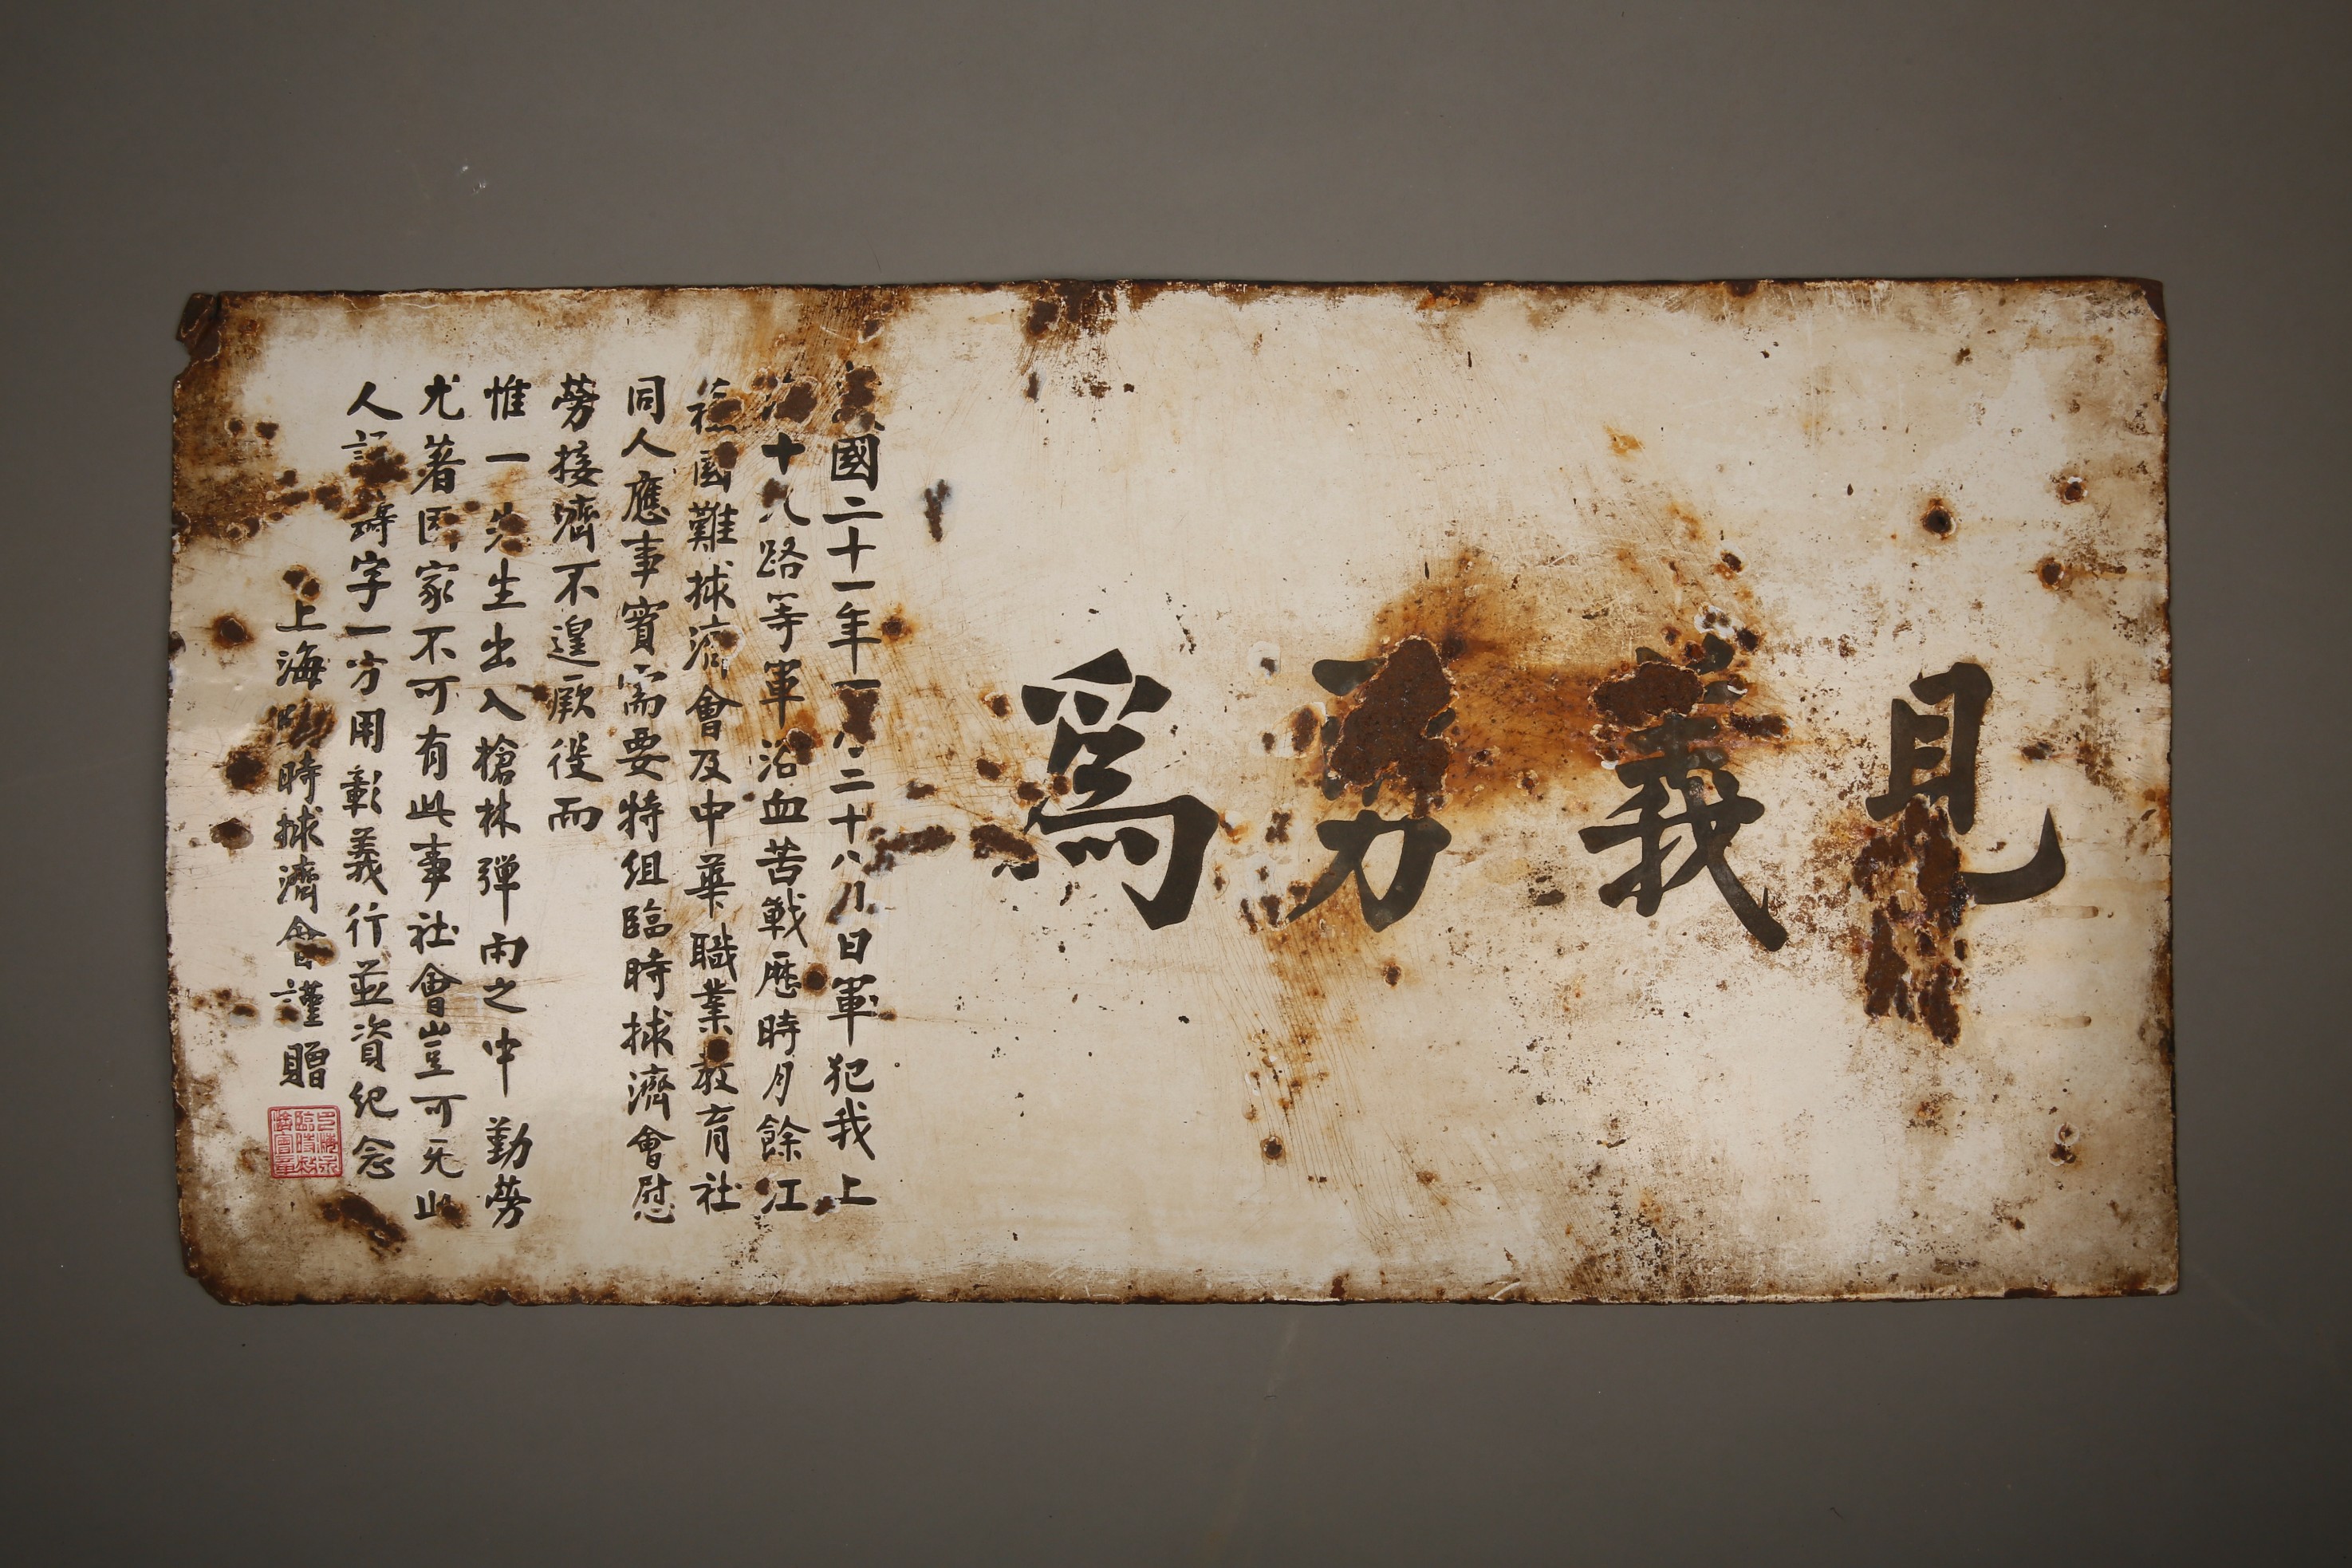 見義勇為
國二十一年一二十八日軍犯我上
海十九路等軍浴血苦戰歷時月餘江
蘇國難捄濟會及中華職業教育社
同人應事實需要特組臨時捄濟會慰
勞接濟不遑厥後而
惟一先生出入槍林彈雨之中勤勞
尤著國家不可有此事社會豈可无此
人字一方用彰義行並資紀念
上海臨時捄濟會謹贈